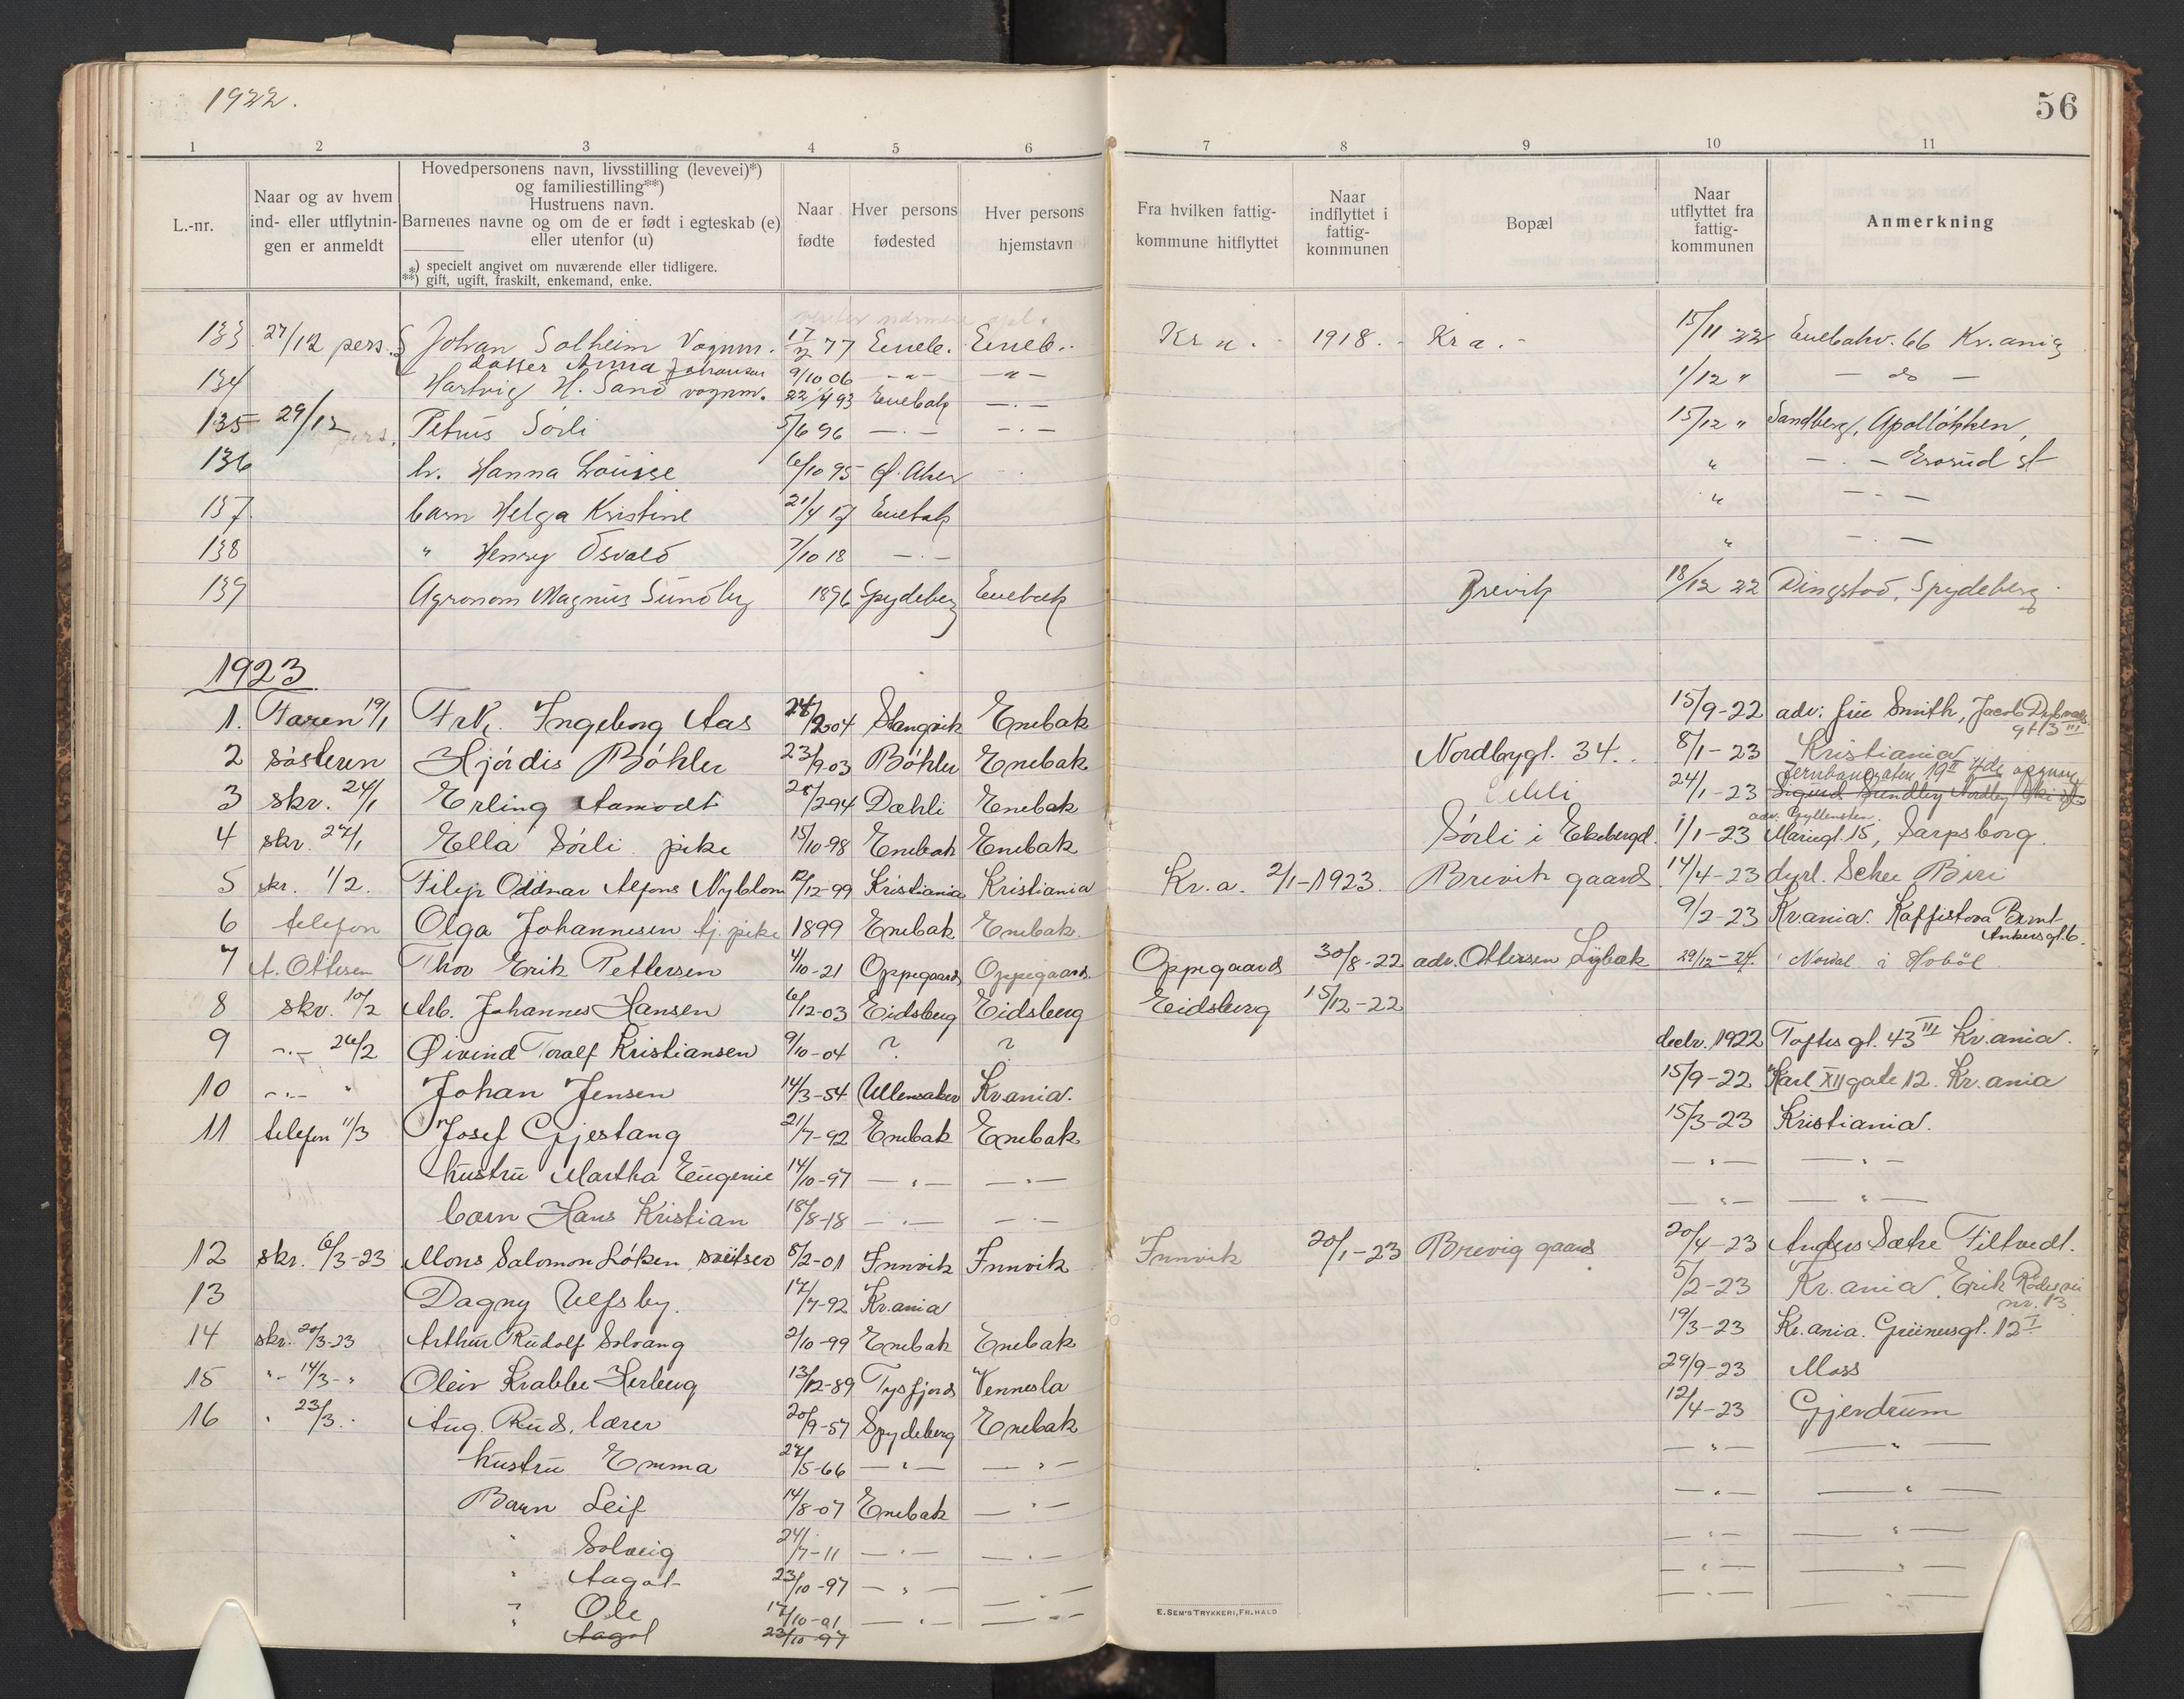 1922.
56
1 2 3 4 5 6 7 8 9 10 11
L.-nr.
Naar og av hvem ind- eller utflytnin-gen er anmeldt
Hovedpersonens navn, livsstilling (levevei)*)
og familiestilling**)
Hustruens navn.
Barnenes navne og om de er født i egteskab (e)
eller utenfor (u)
*) specielt angivet om nuværende eller tidligere.
**) gift, ugift, fraskilt, enkemand, enke.
Naar fødte
Hver persons fødested
Hver persons hjemstavn
Fra hvilken fattig-kommune hitflyttet
Naar indflyttet i fattig-kommunen
Bopæl
Naar utflyttet fra fattig-kommunen
Anmerkning
133 27/12 pers. Johan Solheim Vognm. 17/2 77 Eneb. Eneb. Kr a. 1918. Kr a. 15/11 22 Enebakv. 66 Kr.ania
datter Anna Johansen 9/10 06 - " - - " -
134 Hartvig H. Sand vognm. 22/4 93 Enebak - . - 1/12 " - do -
135 29/12 pers. Petrus Sörli 5/6 96 - . - - . - 15/12 " Sandberg, Apalløkken,
136 h. Hanna Louise 6/10 95 Ø. Aker " - . - st
137 barn Helga Kristine 21/4 17 Enebak " - . -
138 " Henry Osvald 7/10 18 - . - " - . -
139 Agronom Magnus Sundby 1896 Spydeberg Enebak Brevik 18/12 22 Dingstad, Spydeberg
1923
1. Faren 19/1 Frk. Ingeborg Aas 28/2 04 Stangvik Enebak 15/9-22 adr. fru Smith, Jacob Dybvads
gt 13 III
2 søsteren Hjördis Böhler 23/9-03 Böhler Enebak Nordbygt. 34. 8/1-23 Kristiania
Jernbanegaten 19 II
3 skr. 24/1 Erling Aamodt 28/2-94 Dæhli Enebak 24/1-23 Sigurd Sundby Nordby Ski st
adr. Gyllensten.
4 skr. 27/1 Ella Sörli pike 15/10-98 Enebak Enebak Sörli i Ekebergd. 1/1-23 Mariegt. 15, Sarpsborg.
5 skr. 1/2. Filip Oddvar Alfons Nyblom 12/12-99 Kristiania Kristiania Kr.a. 2/1-1923. Brevik gaard. 14/4-23 dyrl. Schee Biri
6 telefon Olga Johannesen tj. pike 1899 Enebak Enebak. 9/2-23 Kr.ania. Kaffistova Bernt
Ankersgt. 6.
7 A. Ottesen Thor Erik Pettersen 4/10-21 Oppegaard Oppegaard. Oppegaard 30/8-22 adr. Ottersen Lybæk 29/12-24. Nordal i Hobøl
8 skr. 10/2 Arb. Johannes Hansen 6/12-03 Eidsberg Eidsberg Eidsberg 15/12-22
9 - . - 26/2 Øivind Toralf Kristiansen 9/10-04 ? ? decbr. 1922 Toftes gt. 43 III Kr.ania.
10 - . - " Johan Jensen 14/3-54 Ullensaker Kr.ania. 15/9-22 Karl XII gate 12. Kr.ania
11 telefon 11/3 Josef Gjestang 21/7-92 Enebak Enebak 15/3-23 Kristiania.
hustru Martha Eugenie 14/10-97 - " - - " - - " - - " -
barn Hans Kristian 18/8-18 - . - - . - - " - - " -
12 skr. 6/3-23 Mons Salomon Löken sveitser 5/2-01 Innvik Innvik Innvik 20/1-23 Brevig gaard 20/4-23 Anders Sætre Filtvedt.
13 Dagny Ulfsby. 17/7-92 Kr.ania 5/2-23 Kr.ania. Erik
nr. 13
14 skr. 20/3-23 Arthur Rudolf Solvang 2/10-99 Enebak Enebak 19/3-23 Kr.ania. Grünersgt. 12 I
15 " - 14/3 - " Oleiv Krabbe Herberg 13/12-89 Tysfjord Vennesla 29/9-23 Moss
16 " 23/3 . Aug. Rud, lærer 20/9-57 Spydeberg Enebak 12/4-23 Gjerdrum
hustru Emma 27/5-66 - " - - " - - " - - " -
Barn Leif 14/8-07 Enebak - " - - " - - " -
" Solveig 24/7-11 - " - - . - - " - - " -
" Aagot 23/10-97 - " - - . - - " - - " -
" Ole 17/10-01 - " - - " - - " - - " -
" Aagot 23/10 97
E. SEM'S TRYKKERI, FR.HALD